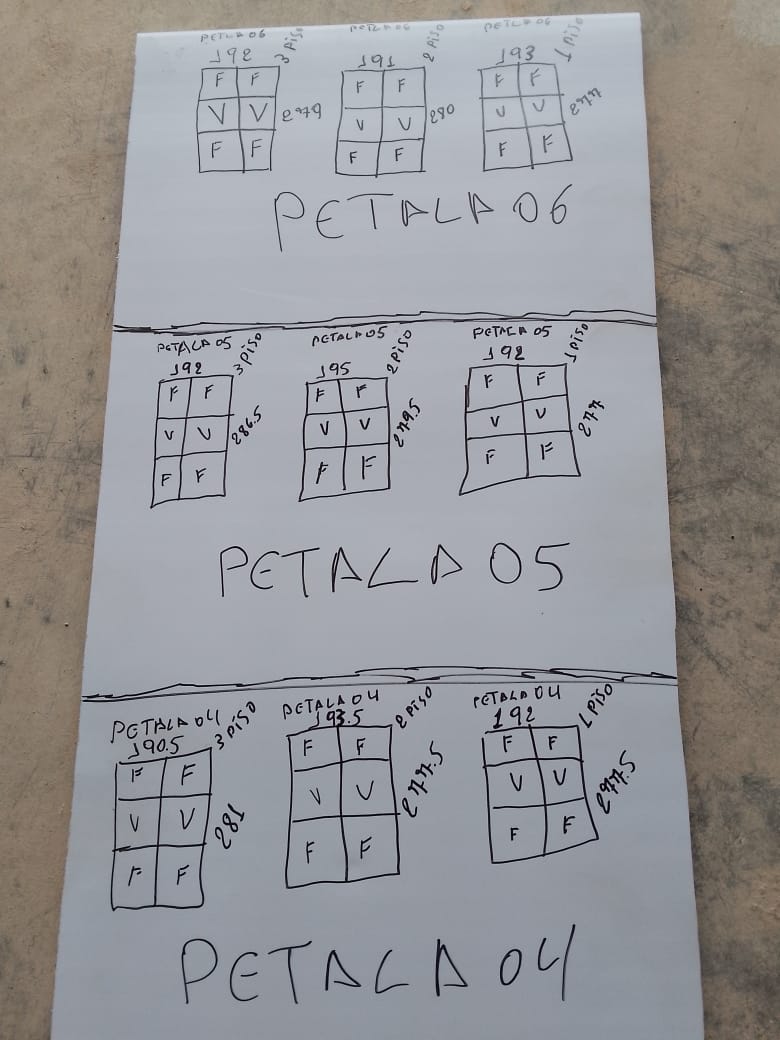 PETALA 06 3 PISO
192
F F
V V 279
F F
PETALA 06 2 PISO
191
F F
V V 280
F F
PETALA 06 1 PISO
193
F F
V V 277
F F
PETALA 06
PETALA 05 3 PISO
192
F F
V V 286.5
F F
PETALA 05 2 PISO
195
F F
V V 279.5
F F
PETALA 05 1 PISO
192
F F
V V 277
F F
PETALA 05
PETALA 04 3 PISO
190.5
F F
V V 281
F F
PETALA 04 2 PISO
193.5
F F
V V 277.5
F F
PETALA 04 1 PISO
192
F F
V V 277.5
F F
PETALA 04